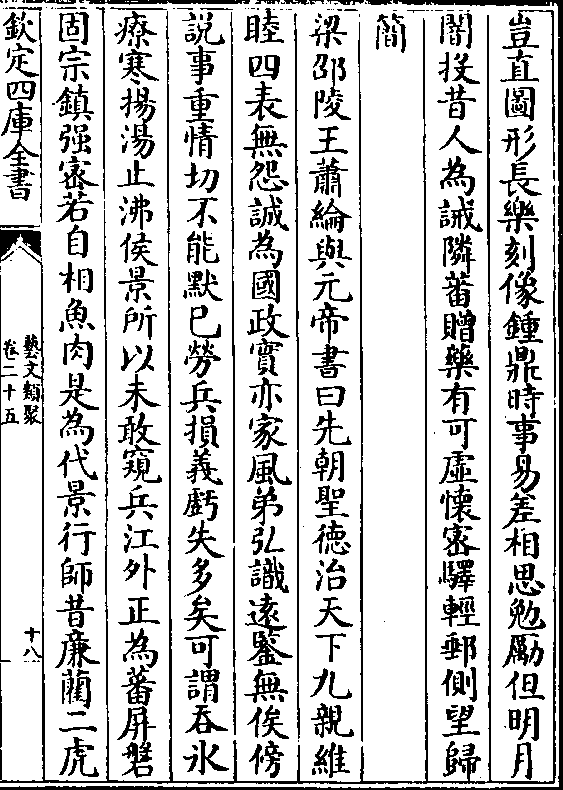 豈直圖形長樂刻像鍾鼎時事易差相思勉勵但明月
闇投昔人為誡隣蕃贈藥有可虛懷密驛輕郵側望歸
簡
梁邵陵王蕭綸與元帝書曰先朝聖德治天下九親維
睦四表無怨誠為國政實亦家風弟弘識遠鑒無俟傍
説事重情切不能默已勞兵損義虧失多矣可謂吞氷
療寒揚湯止沸侯景所以未敢窺兵江外正為蕃屏磐
固宗鎮强密若自相魚肉是為代景行師昔廉藺二虎
欽定四庫全書
藝文類聚
卷二十五
十八